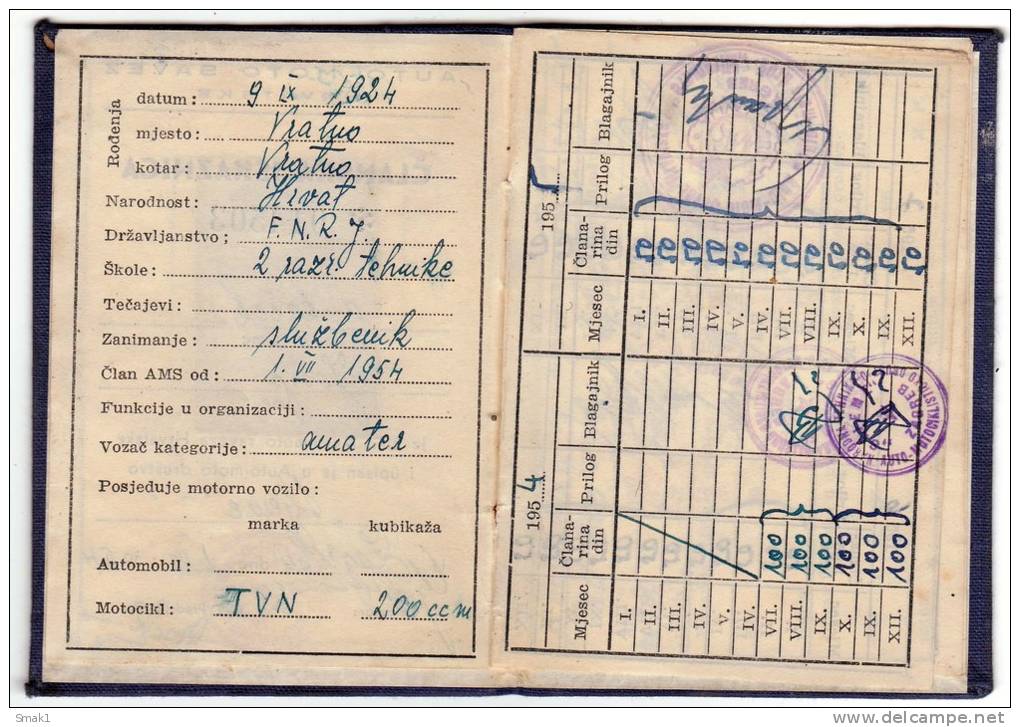 Rođenja
datum: 9 IX 1924
mjesto: Vratno
kotar: Vratno
Narodnost: Hrvat
Državljanstvo; F. N. R. J.
Škole: 2 razr. tehnike
Tečajevi:
Zanimanje: službenik
Član AMS od: 1. VII 1954
Funkcije u organizaciji:
Vozač kategorije: amater
Posjeduje motorno vozilo:
marka kubikaža
Automobil:
Motocikl: TVN 200 ccm
1954
Mjesec Člana-rina din Prilog Blagajnik
I.
II.
III.
IV.
V.
IV.
VII. 100
VIII. 100
IX. 100
X. 100
IX. 100
XII. 100
1955
Mjesec Člana-rina din Prilog Blagajnik
I. 50
II. 50
III. 50
IV. 50
V. 50
IV. 50
VII. 50
VIII. 50
IX. 50
X. 50
IX. 50
XII. 50
ZAGREB
Smak1
www.delcampe.net